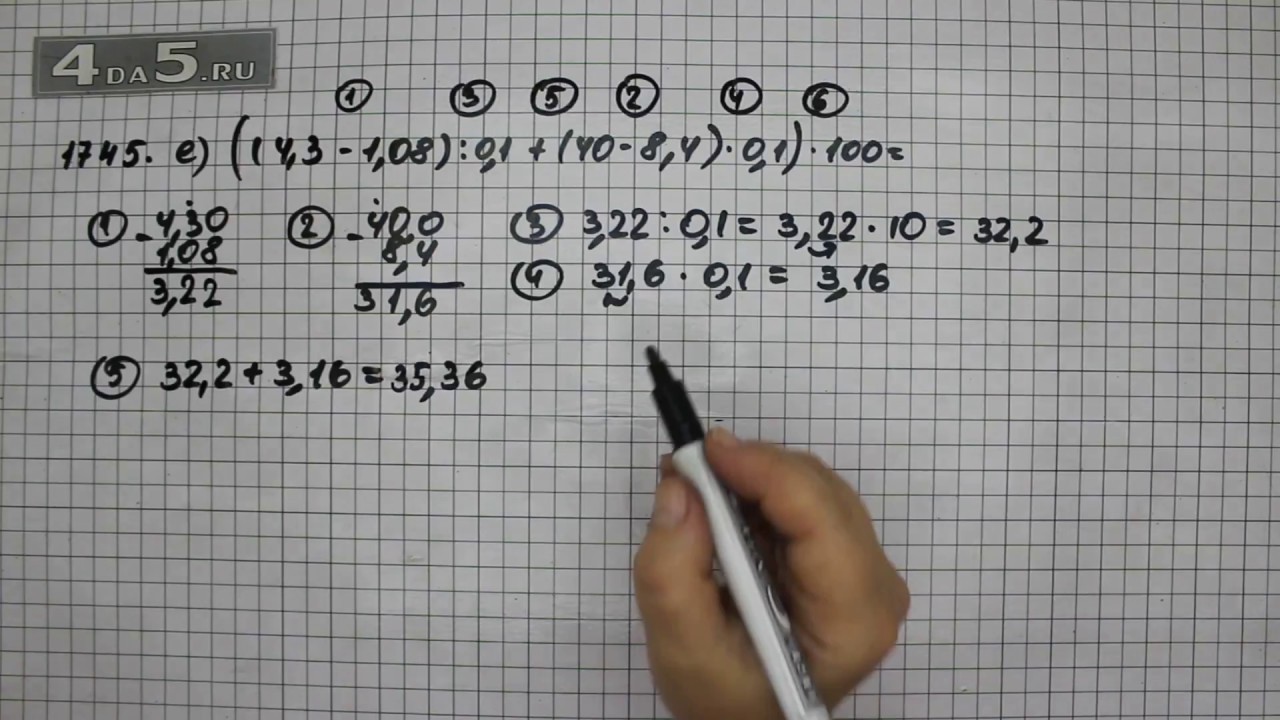 4DA5.RU
① ③ ⑤ ② ④ ⑥
1745. е) ((4,3 - 1,08) : 0,1 + (40 - 8,4) · 0,1) · 100 =
① 4,30 - 1,08 3,22
② 40,0 - 8,4 31,6
③ 3,22 : 0,1 = 3,22 · 10 = 32,2
④ 31,6 · 0,1 = 3,16
⑤ 32,2 + 3,16 = 35,36